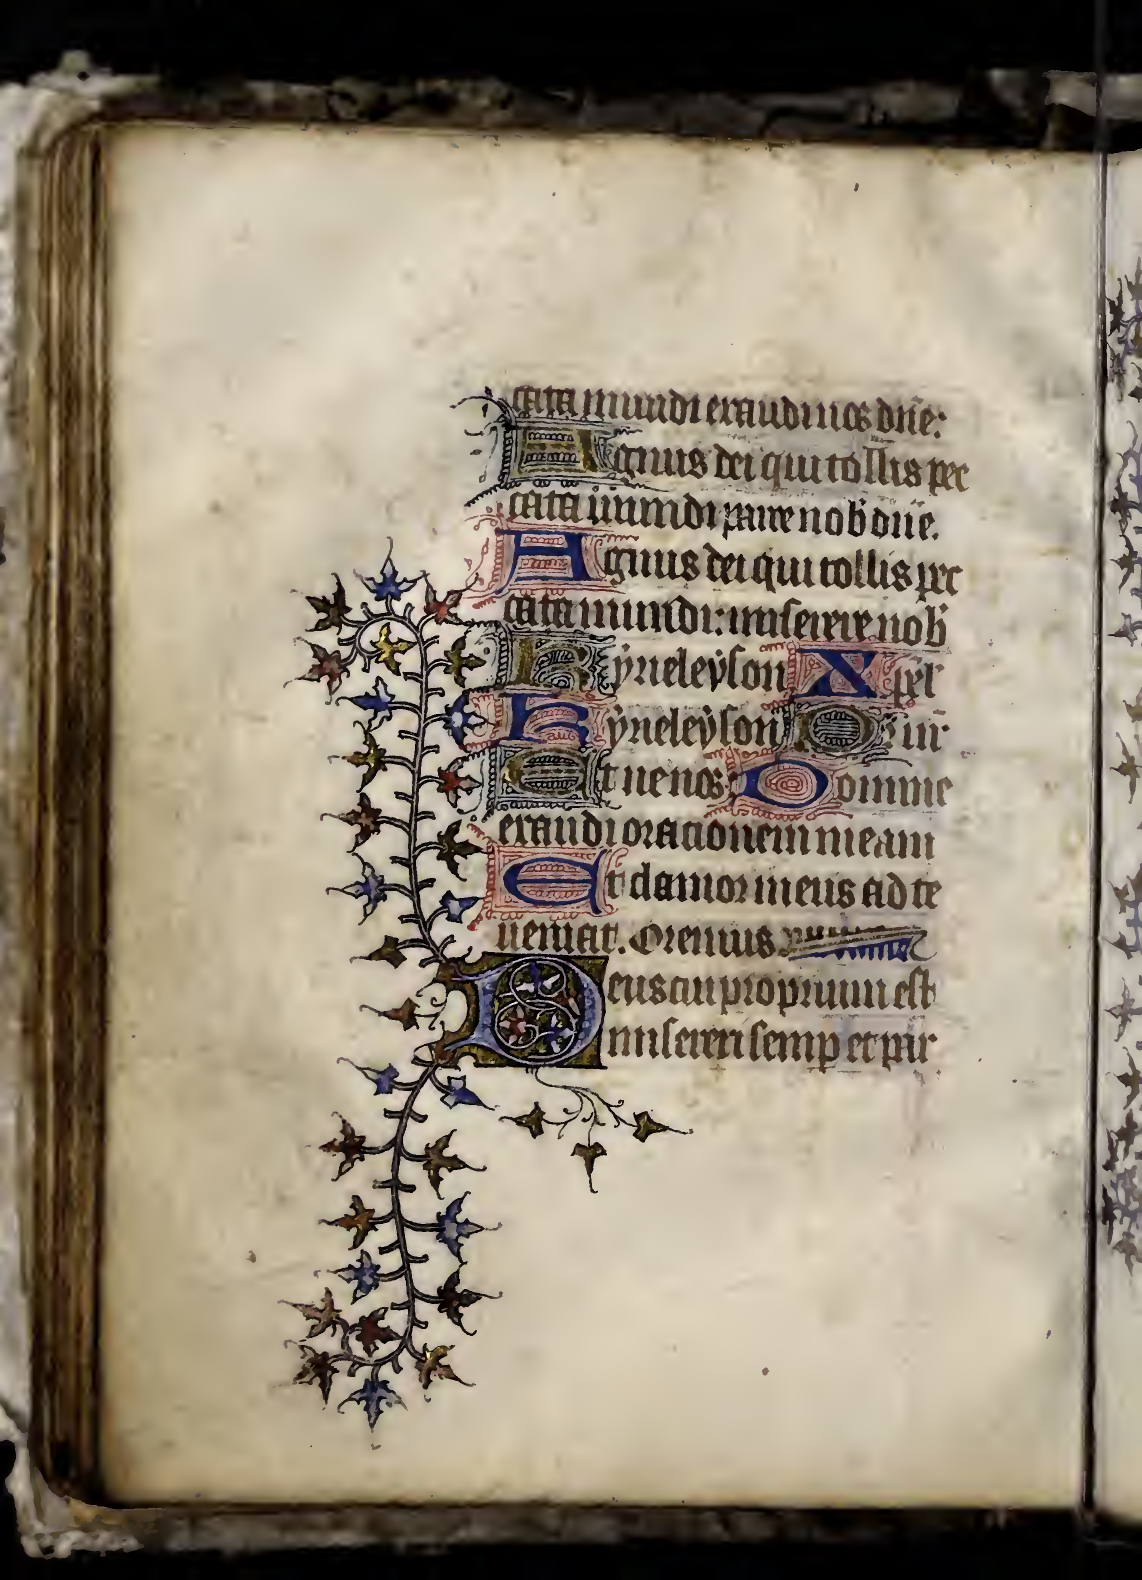 cata mundi exaudi nos dñe:
Agnus dei qui tollis pec
cata mundi parce nob dñe.
Agnus dei qui tollis pec
cata mundi: miserere nob
Kyrieleyson Xpel
Kyrieleyson
Et ne nos Domine
exaudi orationem meam
Et clamor meus ad te
ueniat. Oremus
Deus cui proprium est
misereri semp et par